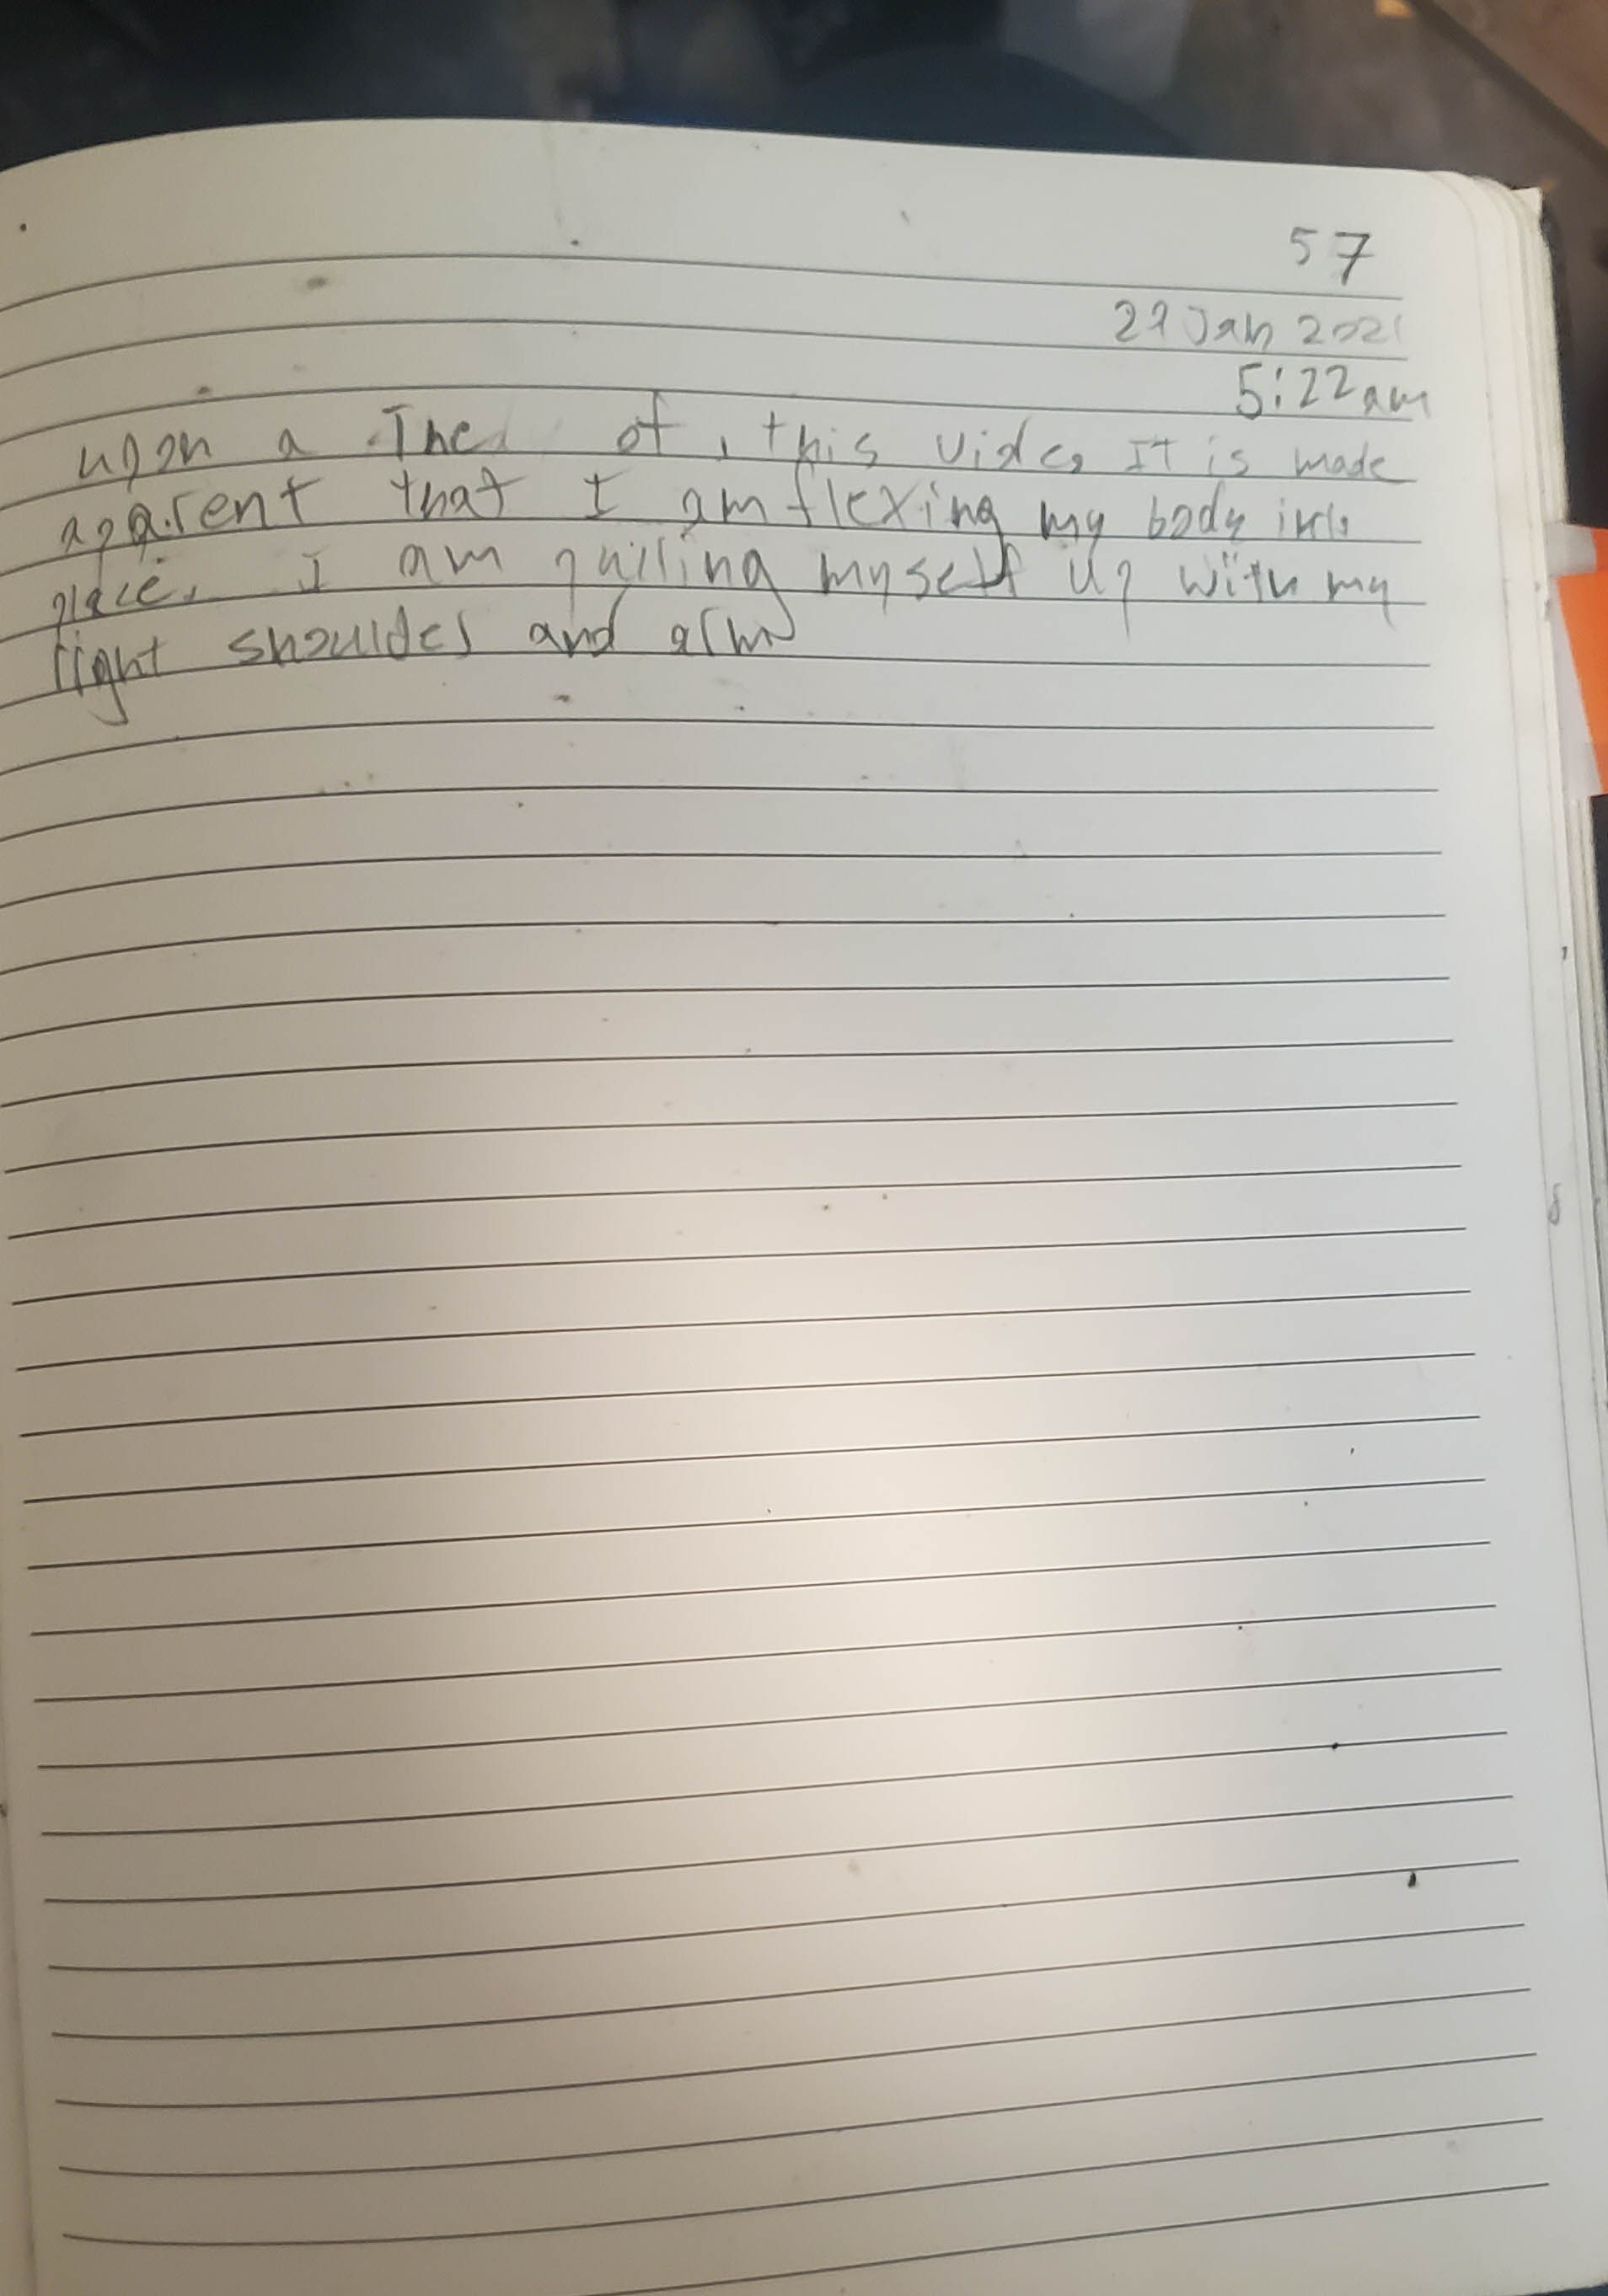 57
29 Jan 2021
5:22am
upon a The of, this video It is made
apparent that I am flexing my body into
place. I am pulling myself up with my
right shoulder and arm